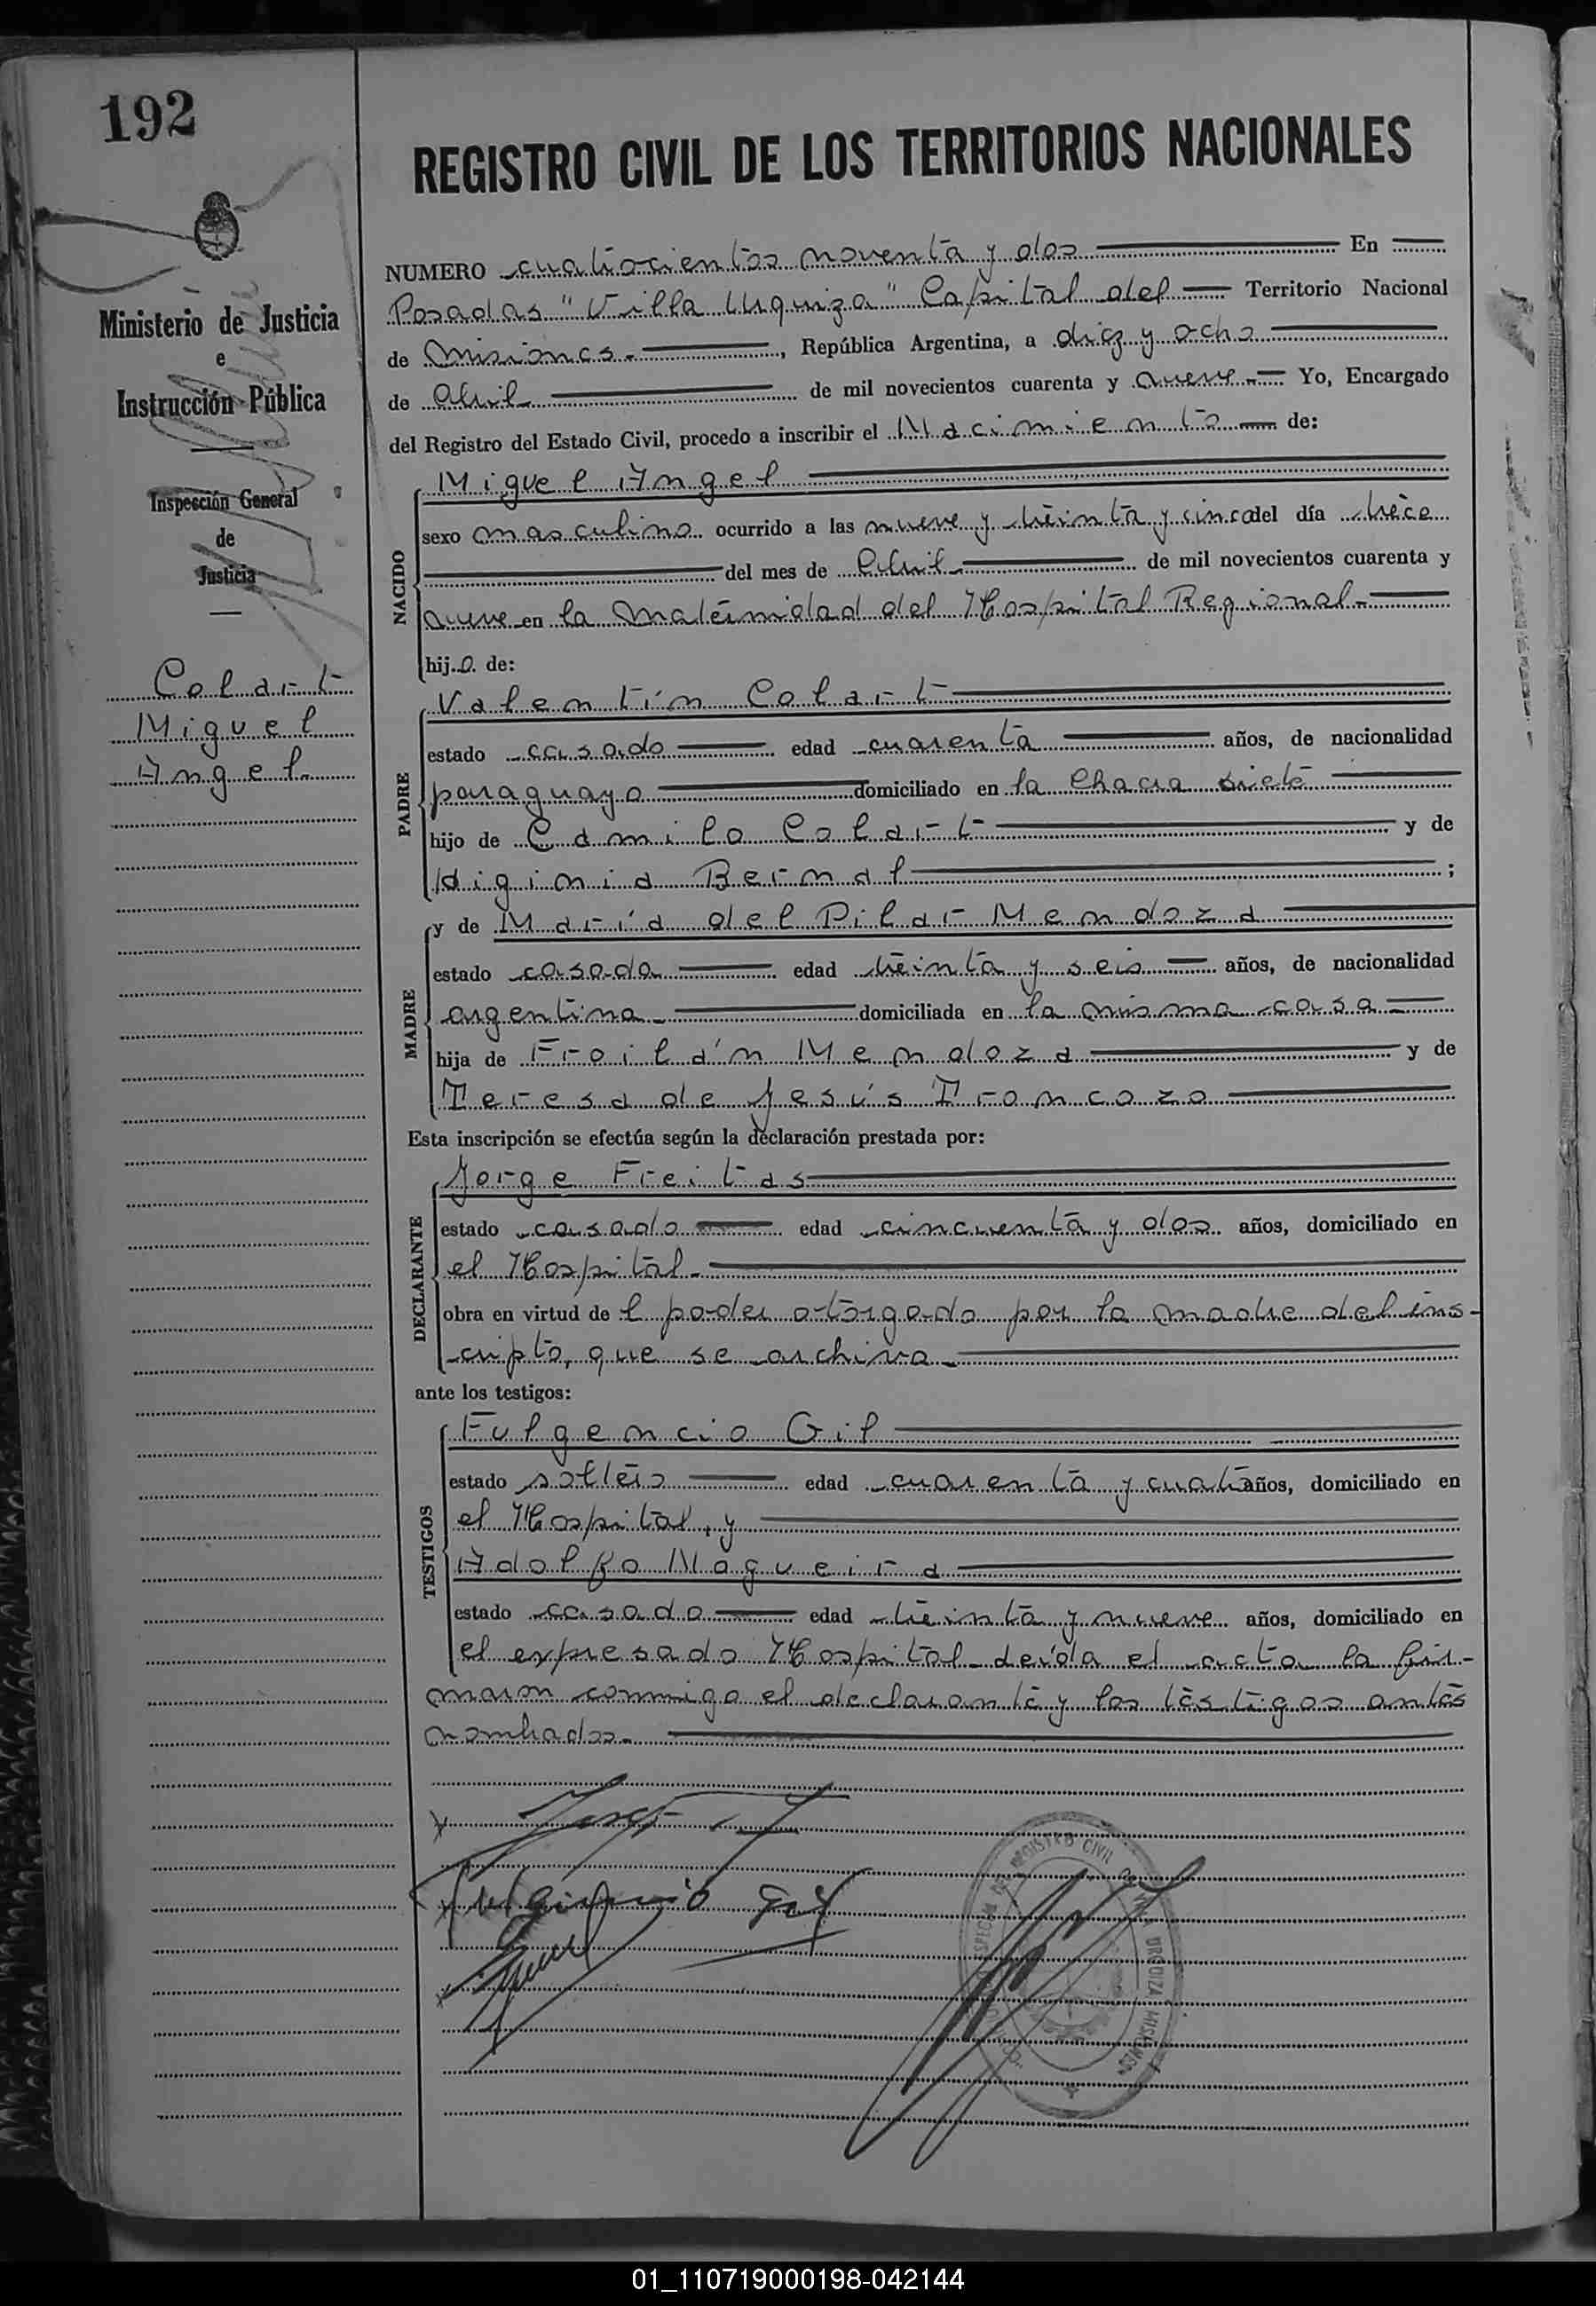 192
REGISTRO CIVIL DE LOS TERRITORIOS NACIONALES
Ministerio de Justicia
e
Instrucción Pública
Inspección General
de
Justicia
Colart
Miguel
Angel
NUMERO cuatrocientos noventa y dos En
Posadas "Villa Urquiza" Capital del Territorio Nacional
de Misiones, República Argentina, a diez y ocho
de Abril de mil novecientos cuarenta y nueve Yo, Encargado
del Registro del Estado Civil, procedo a inscribir el Nacimiento de:
NACIDO
Miguel Angel
sexo masculino ocurrido a las nueve y treinta y cinco del día trece
del mes de Abril de mil novecientos cuarenta y
nueve en la Maternidad del Hospital Regional
hijo de:
PADRE
Valentín Colart
estado casado edad cuarenta años, de nacionalidad
paraguayo domiciliado en la Chacra siete
hijo de Camilo Colart y de
Higinia Bernal ;
MADRE
y de María del Pilar Mendoza
estado casada edad treinta y seis años, de nacionalidad
argentina domiciliada en la misma casa
hija de Froilán Mendoza y de
Teresa de Jesús Troncozo
Esta inscripción se efectúa según la declaración prestada por:
DECLARANTE
Jorge Freitas
estado casado edad cincuenta y dos años, domiciliado en
el Hospital
obra en virtud de l poder otorgado por la madre del ins-
cripto, que se archiva
ante los testigos:
TESTIGOS
Fulgencio Gil
estado soltero edad cuarenta y cuatro años, domiciliado en
el Hospital, y
Adolfo Nogueira
estado casado edad treinta y nueve años, domiciliado en
el expresado Hospital leída el acta la fir-
maron conmigo el declarante y los testigos antes
nombrados.
Fulgencio Gil
REGISTRO CIVIL
URQUIZA MISIONES
01_110719000198-042144